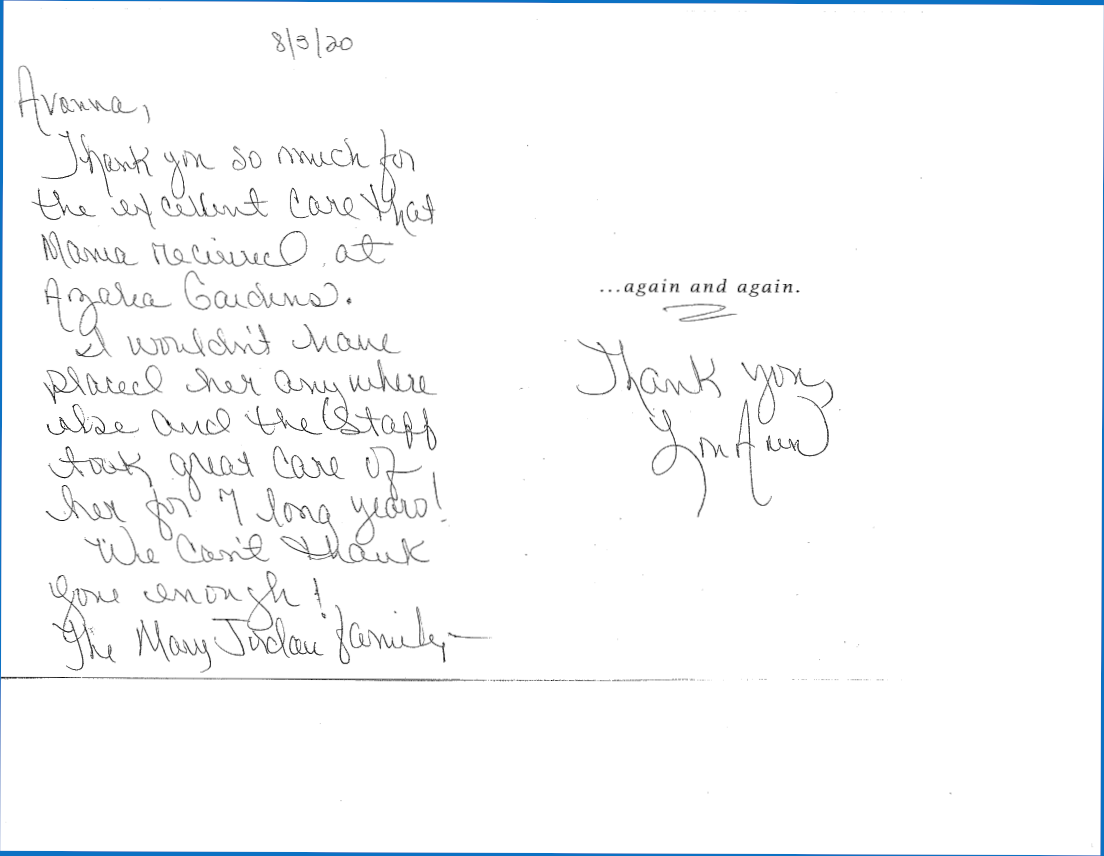 8/3/20
Avanna,
Thank you so much for
the excellent care that
Mama received at
Azalea Gardens.
I wouldn't have
placed her anywhere
else and the staff
took great care of
her for 7 long years!
We can't thank
you enough!
The Mary Jordan family
...again and again.
Thank you,
LouAnn